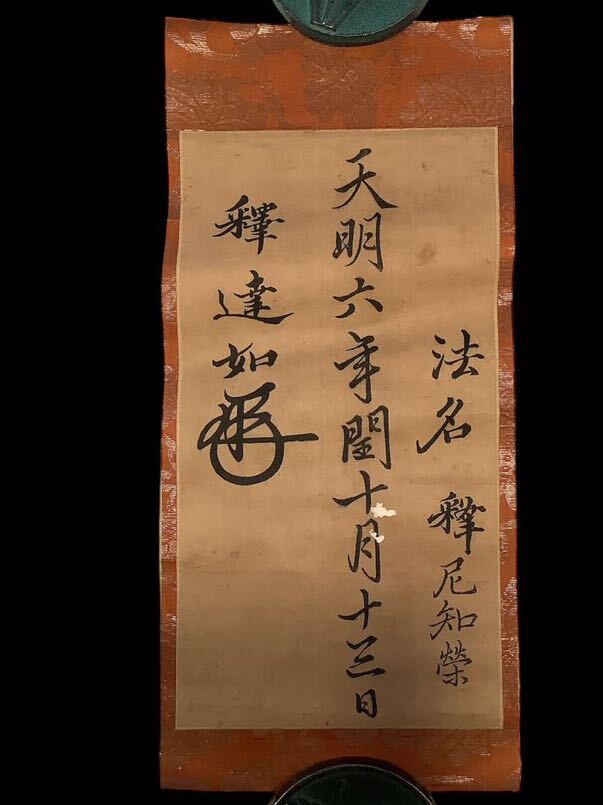 法名 釋尼知榮
天明六年閏十月十三日
釋達如